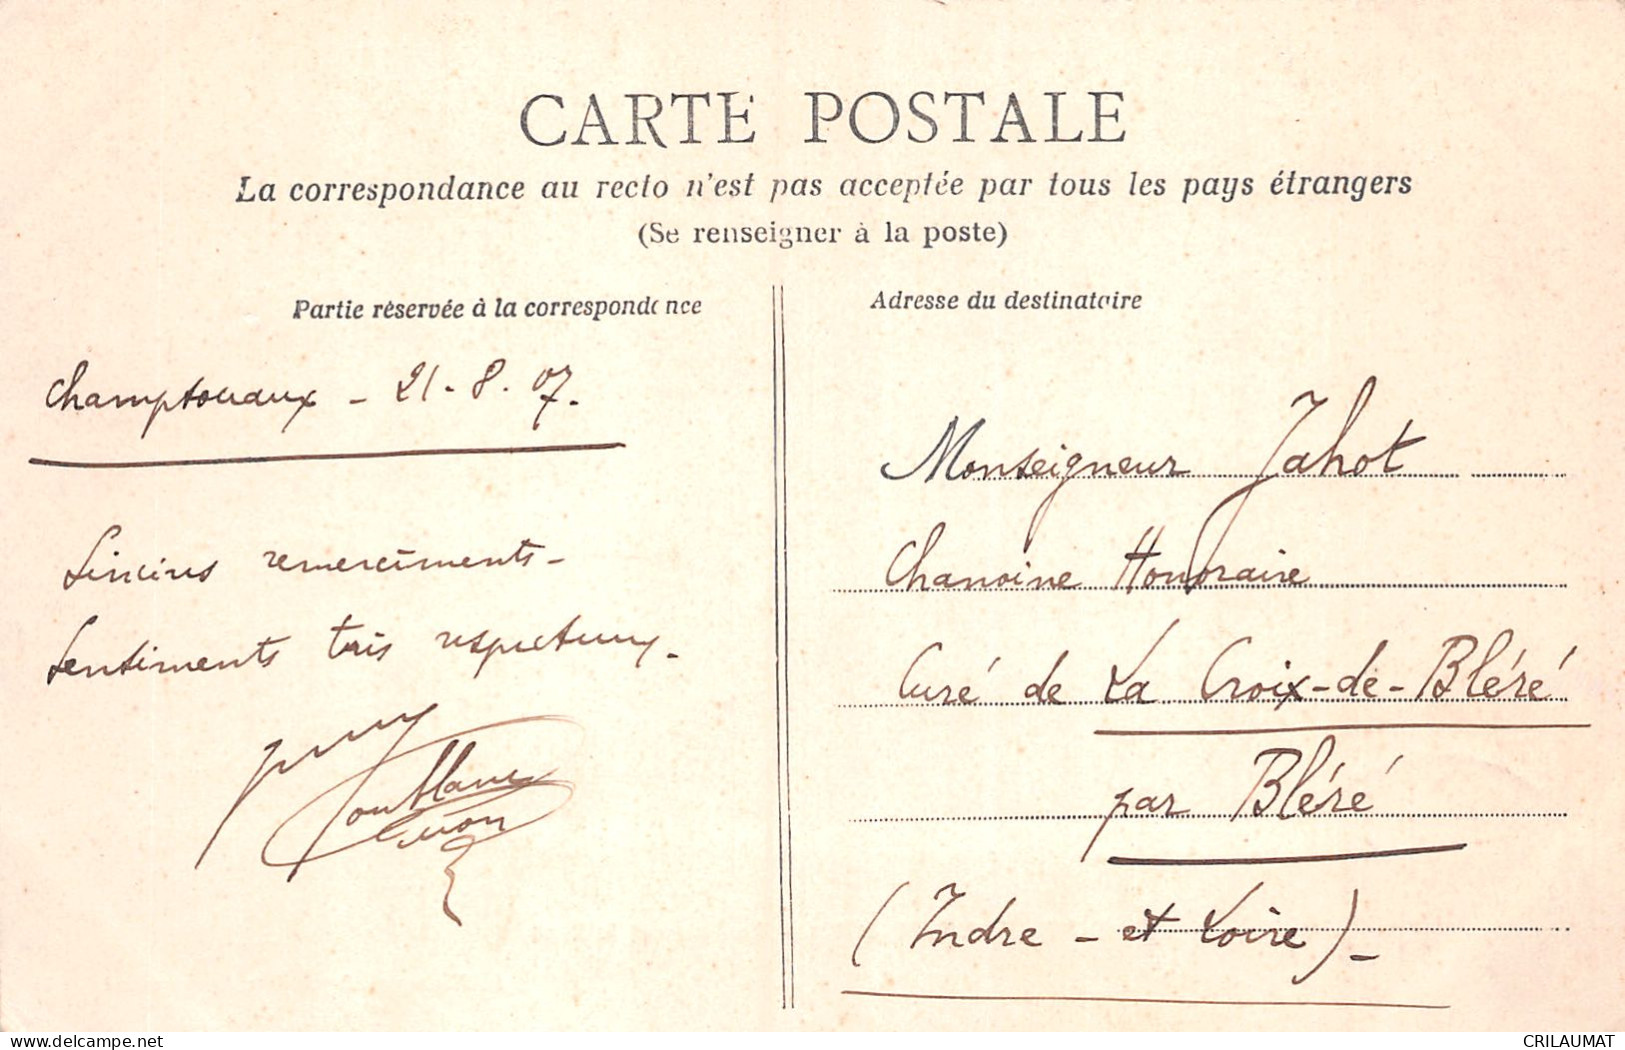 CARTE POSTALE
La correspondance au recto n'est pas acceptée par tous les pays étrangers
(Se renseigner à la poste)
Partie réservée à la correspondance
Champtoceaux - 21-8.07.
Sincères remerciments-
Sentiments très respectueux-
Adresse du destinataire
Monseigneur Jahot
Chanoine Honoraire
Curé de La Croix-de-Bléré
par Bléré
(Indre - et Loire)-
delcampe.net
CRILAUMAT